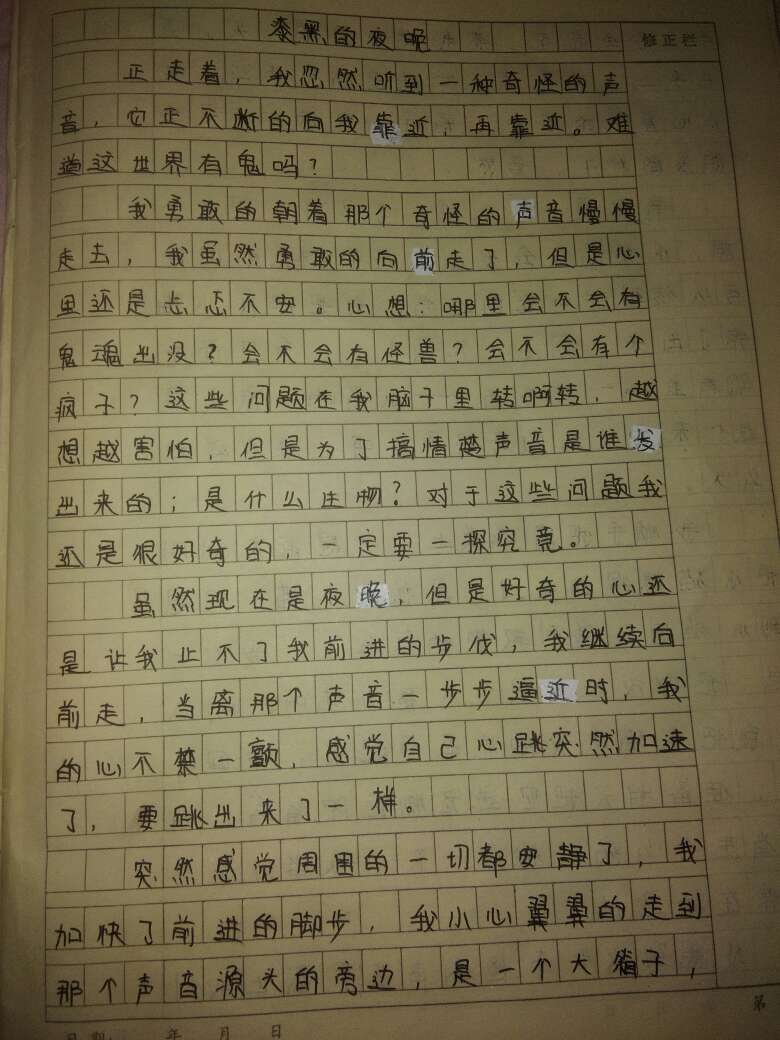 漆黑的夜晚
修正栏
正走着，我忽然听到一种奇怪的声
音，它正不断的向我靠近，再靠近。难
道这世界有鬼吗？
我勇敢的朝着那个奇怪的声音慢慢
走去，我虽然勇敢的向前走了，但是心
里还是忐忑不安。心想：哪里会不会有
鬼魂出没？会不会有怪兽？会不会有个
疯子？这些问题在我脑子里转啊转，越
想越害怕，但是为了搞情楚声音是谁发
出来的；是什么生物？对于这些问题我
还是很好奇的，一定要一探究竟。
虽然现在是夜晚，但是好奇的心还
是让我止不了我前进的步伐，我继续向
前走，当离那个声音一步步逼近时，我
的心不禁一颤，感觉自己心跳突然加速
了，要跳出来了一样。
突然感觉周围的一切都安静了，我
加快了前进的脚步，我小心翼翼的走到
那个声音源头的旁边，是一个大箱子，
第
日期 年 月 日